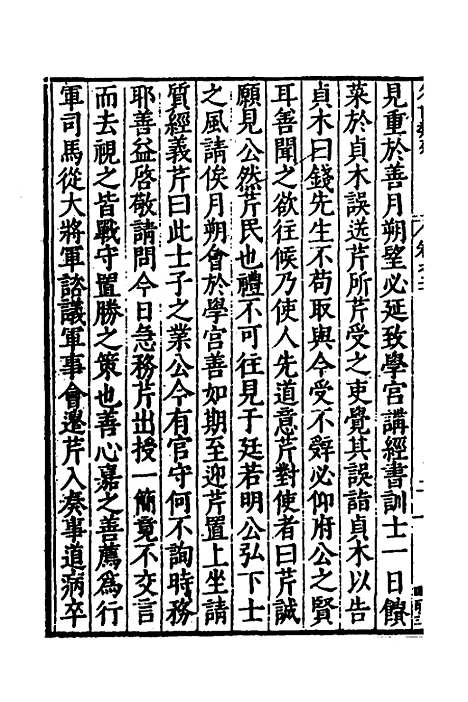 見重於善月朔望必延致學宮講經書訓士一日饋
菜於貞木誤送芹所芹受之吏覺其誤詣貞木以告
貞木曰錢先生不苟取與今受不辤必仰府公之賢
耳善聞之欲往候乃使人先道意芹對使者曰芹誠
願見公然芹民也禮不可往見于廷若明公弘下士
之風請俟月朔會於學宮善如期至迎芹置上坐請
質經義芹曰此士子之業公今有官守何不詢時務
耶善益啓敬請問今日急務芹出授一簡竟不交言
而去視之皆戰守置勝之策也善心嘉之善薦為行
軍司馬從大將軍諮議軍事會遣芹入奏事道病卒